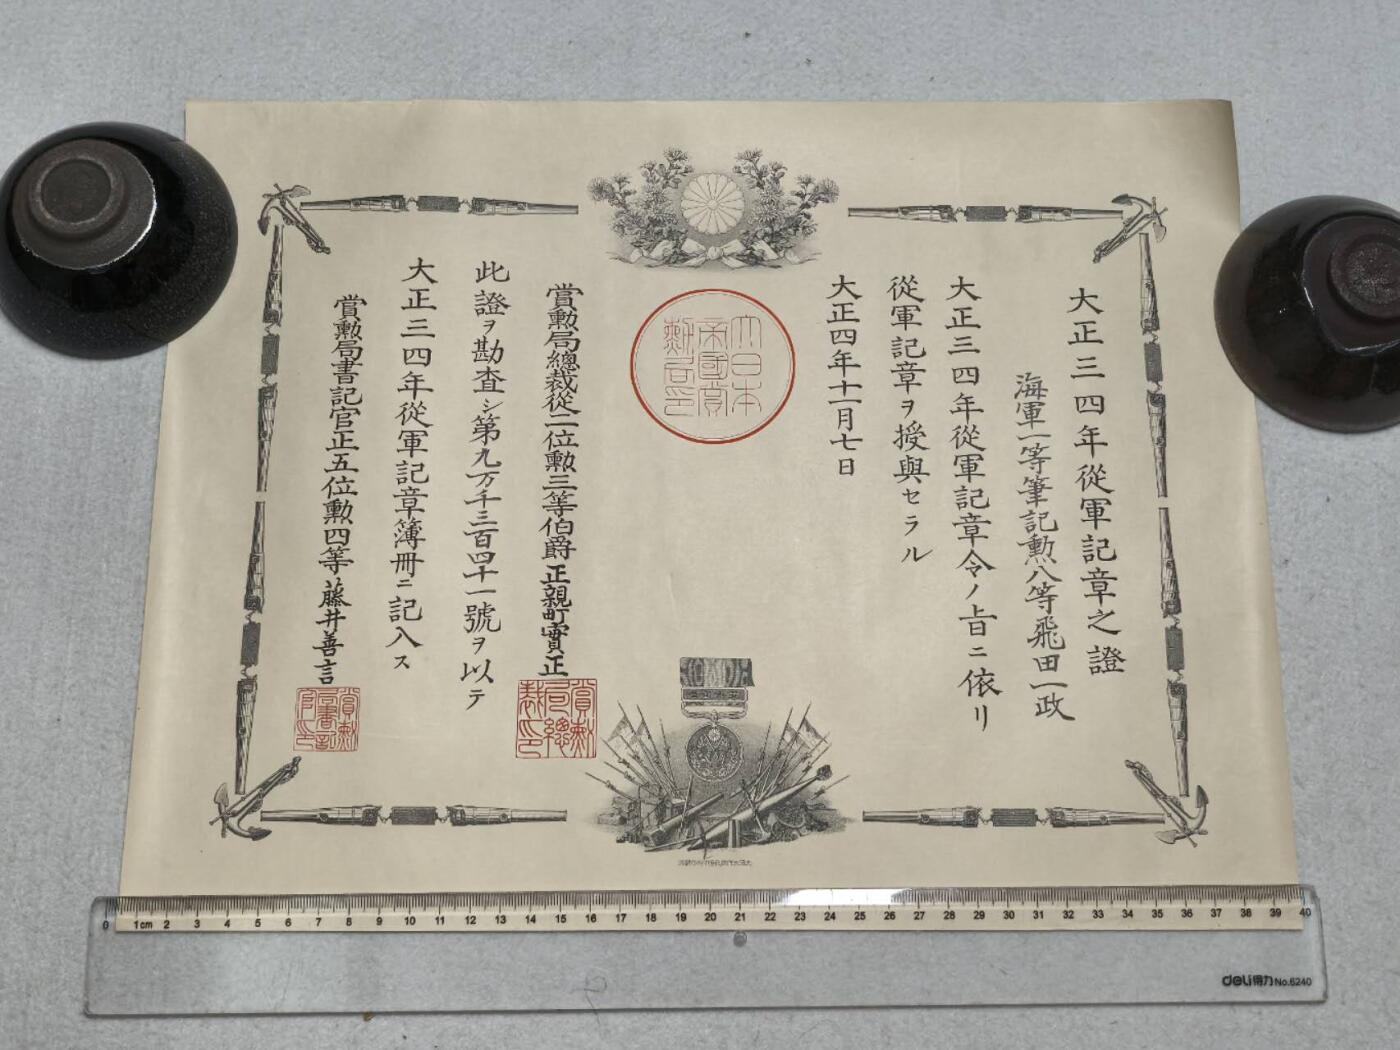 大正三四年從軍記章之證
海軍一等筆記勲八等飛田一政
大正三四年從軍記章令ノ旨ニ依リ
從軍記章ヲ授與セラル
大正四年十一月七日
大日本
帝國賞
勲局印
賞勲局總裁從二位勲三等伯爵正親町實正
賞勲
局總
裁印
此證ヲ勘査シ第九万千三百四十一號ヲ以テ
大正三四年從軍記章簿冊ニ記入ス
賞勲局書記官正五位勲四等藤井善言
賞勲
局書記
官印
0 1cm 2 3 4 5 6 7 8 9 10 11 12 13 14 15 16 17 18 19 20 21 22 23 24 25 26 27 28 29 30 31 32 33 34 35 36 37 38 39 40
deli得力 No.6240